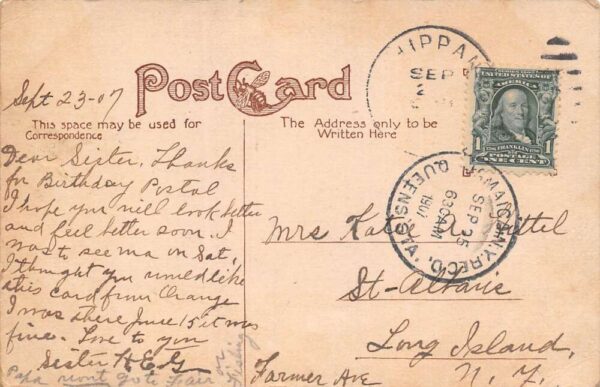 Post Card
This space may be used for
Correspondence
The Address only to be
Written Here
Sept 23-07
Dear Sister, Thanks
for Birthday Postal
I hope you will look better
and feel better soon. I
was to see ma on Sat,
I thought you would like
this card from Orange
I was there June 15 it was
fine. Love to you
Sister H.E.G
Papa wont go to Fair
or Fishing
Mrs Katie A.
St. Albans
Long Island,
Farmer Ave N. Y.
HIPPAN
SEP
2
JAMAICA, N.Y. REC'D.
SEP 25
630AM
1907
QUEENS STA
UNITED STATES OF
FRANKLIN
POSTAGE
1 ONE CENT 1